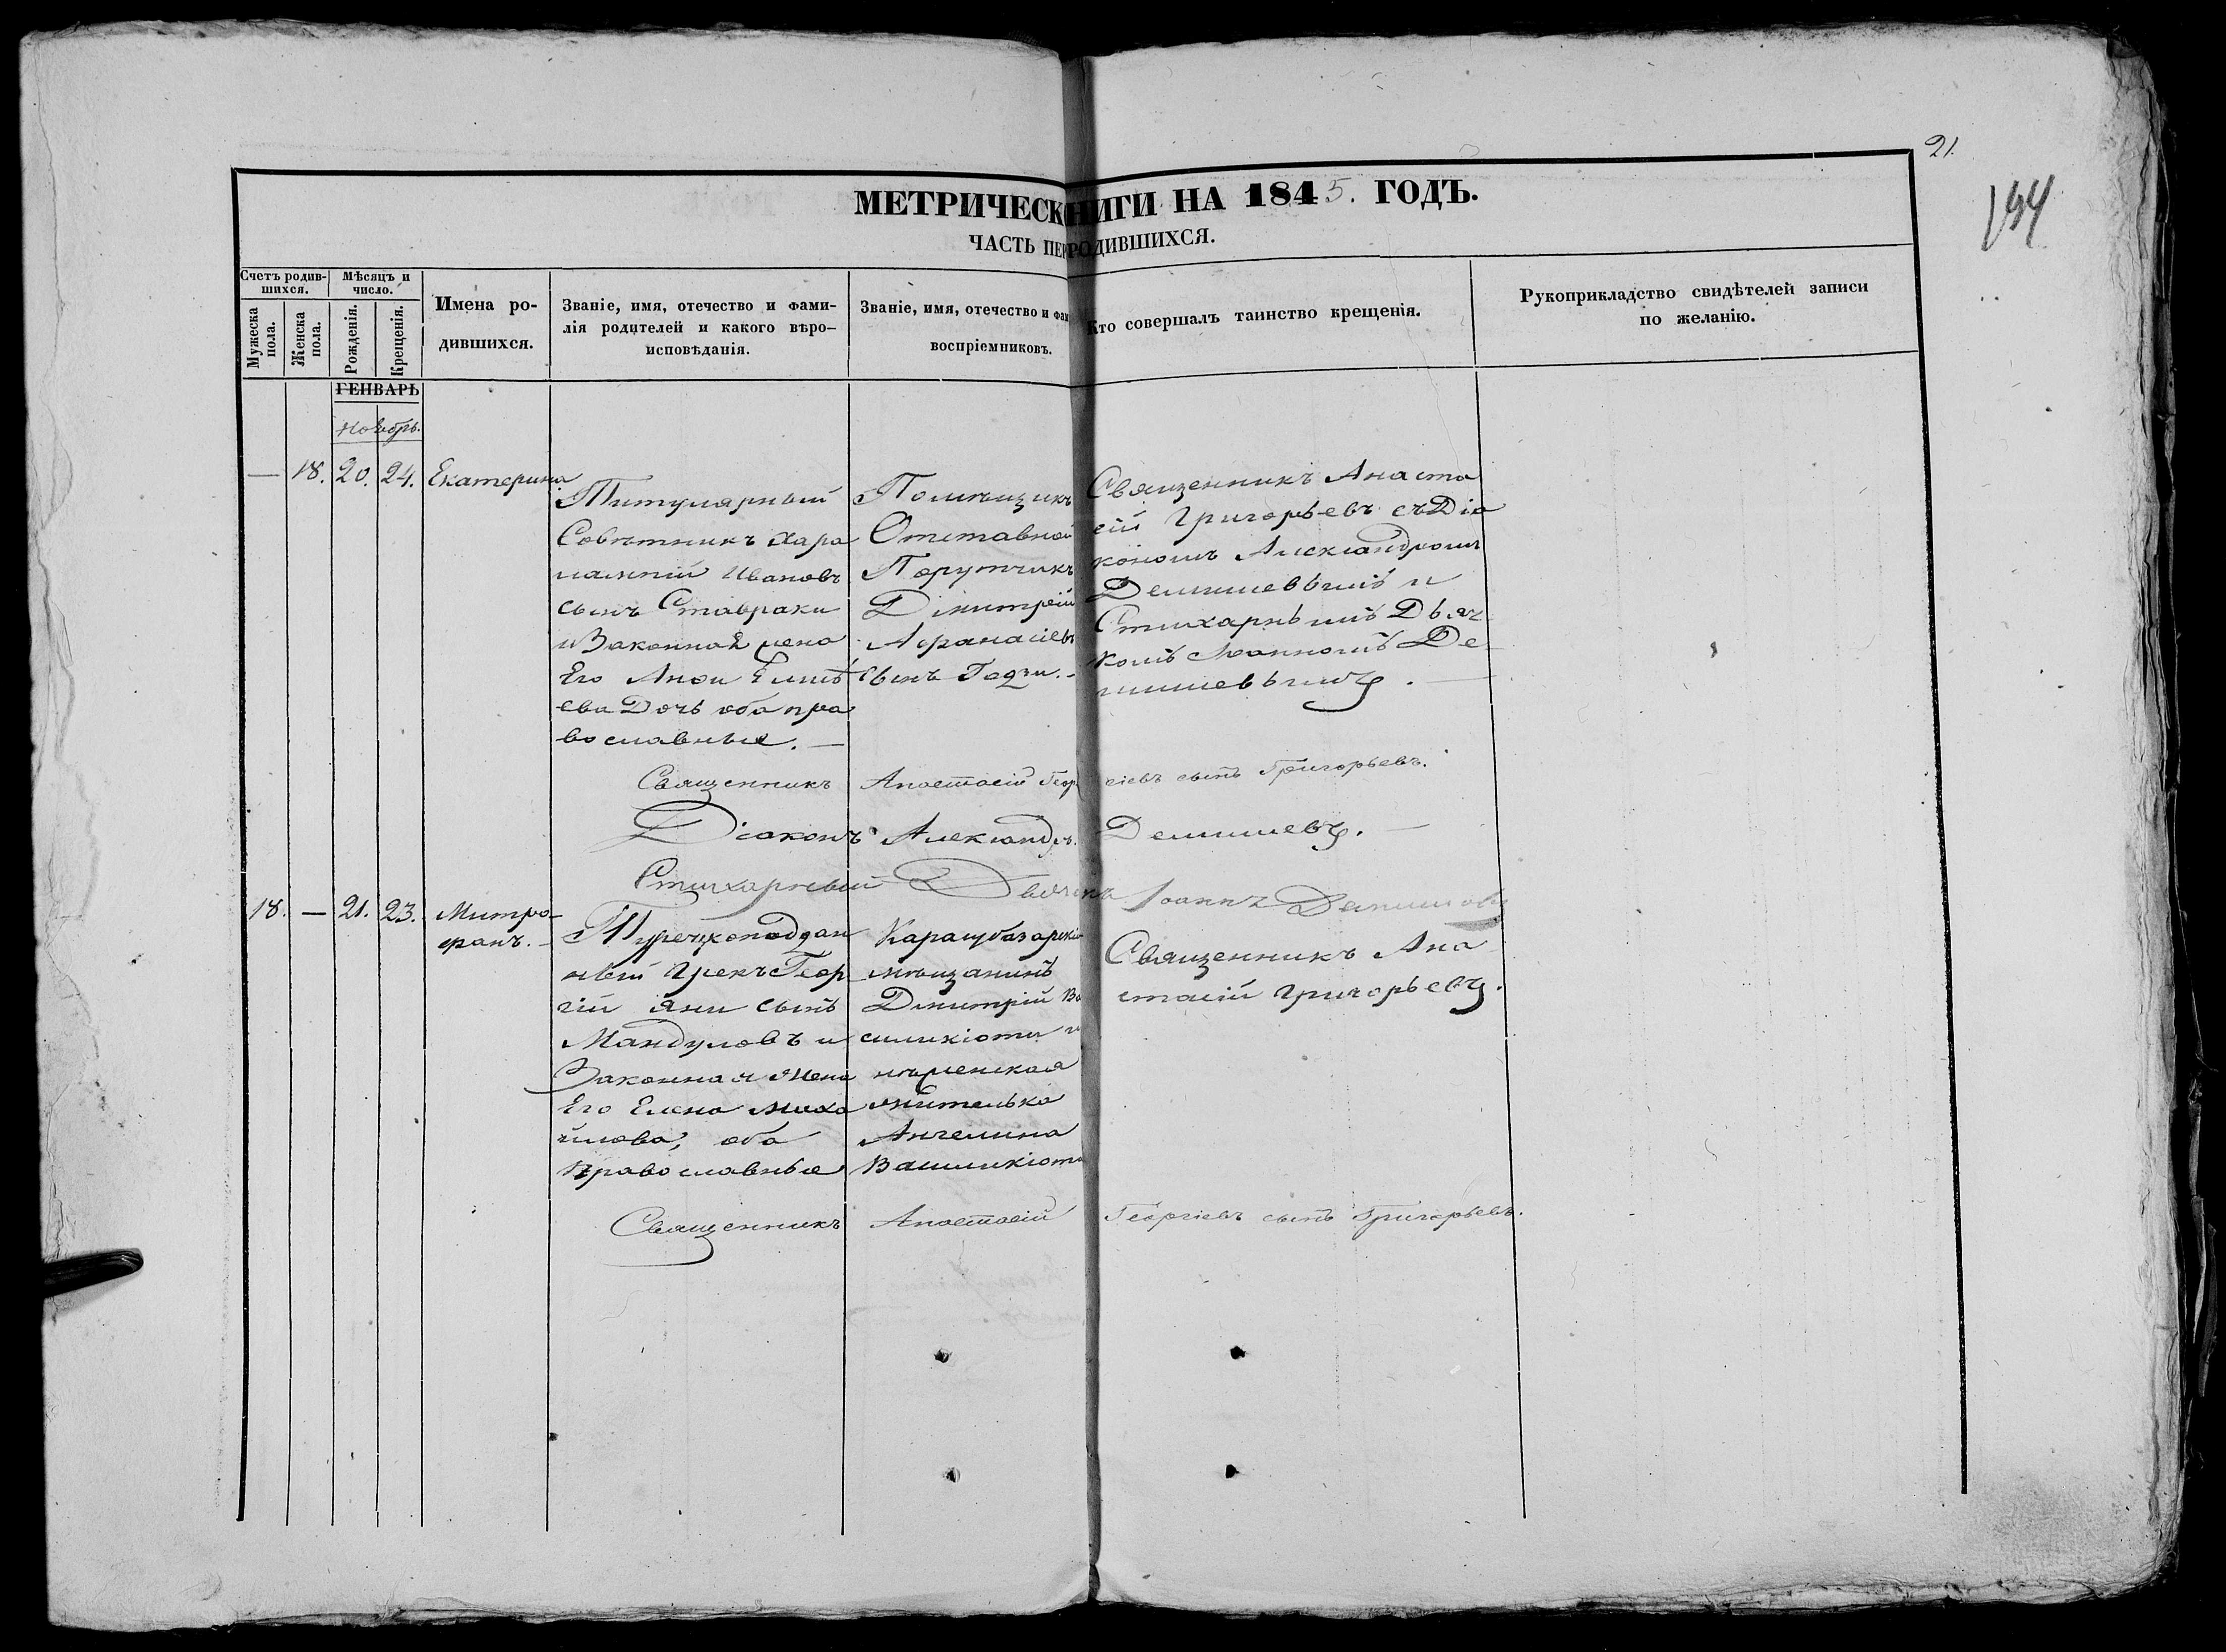 21.
194
МЕТРИЧЕСК НИГИ НА 1845. ГОДЪ.
ЧАСТЬ ПЕР РОДИВШИХСЯ.
Счетъ родив-
шихся.
Мужеска
пола.
Женска
пола.
Мѣсяцъ и
число.
Рожденія.
Крещенія.
Имена ро-
дившихся.
Званіе, имя, отечество и фами-
лія родителей и какого вѣро-
исповѣданія.
Званіе, имя, отечество и фам
воспріемниковъ.
Кто совершалъ таинство крещенія.
Рукоприкладство свидѣтелей записи
по желанію.
ГЕНВАРЬ
Ноябрь.
— 18. 20. 24. Екатерина
Титулярный
Совѣтникъ Хара
лампій Ивановъ
сынъ Ставраки
и Законная жена
Его
ева Дочь оба пра
вославные. —
Помѣщикъ
Отставной
Порутчикъ
Дмитрій
Афанасіевъ
сынъ
Священникъ Анаста
сій Григорьевъ съ Діа
кономъ Александромъ
Демишевымъ и
Стихарнымъ Дьяч
комъ Іоанномъ Де
мишевымъ. —
Священникъ Анастасій Георгіевъ сынъ Григорьевъ.
Діаконъ Александръ Демишевъ. —
Стихарный Дьячекъ Іоаннъ Демишевъ
18. — 21. 23. Митро-
фанъ. —
Турецкоподдан
ный Грекъ Геор
гій Яни сынъ
Мандуловъ и
Законная Жена
Его Елена Миха
йлова, оба
православные
Карасубазарскій
мѣщанинъ
Дмитрій Ва
силикіоти и
жителька
Ангелина
Василикіоти
Священникъ Ана
стасій Григорьевъ.
Священникъ Анастасій Георгіевъ сынъ Григорьевъ.